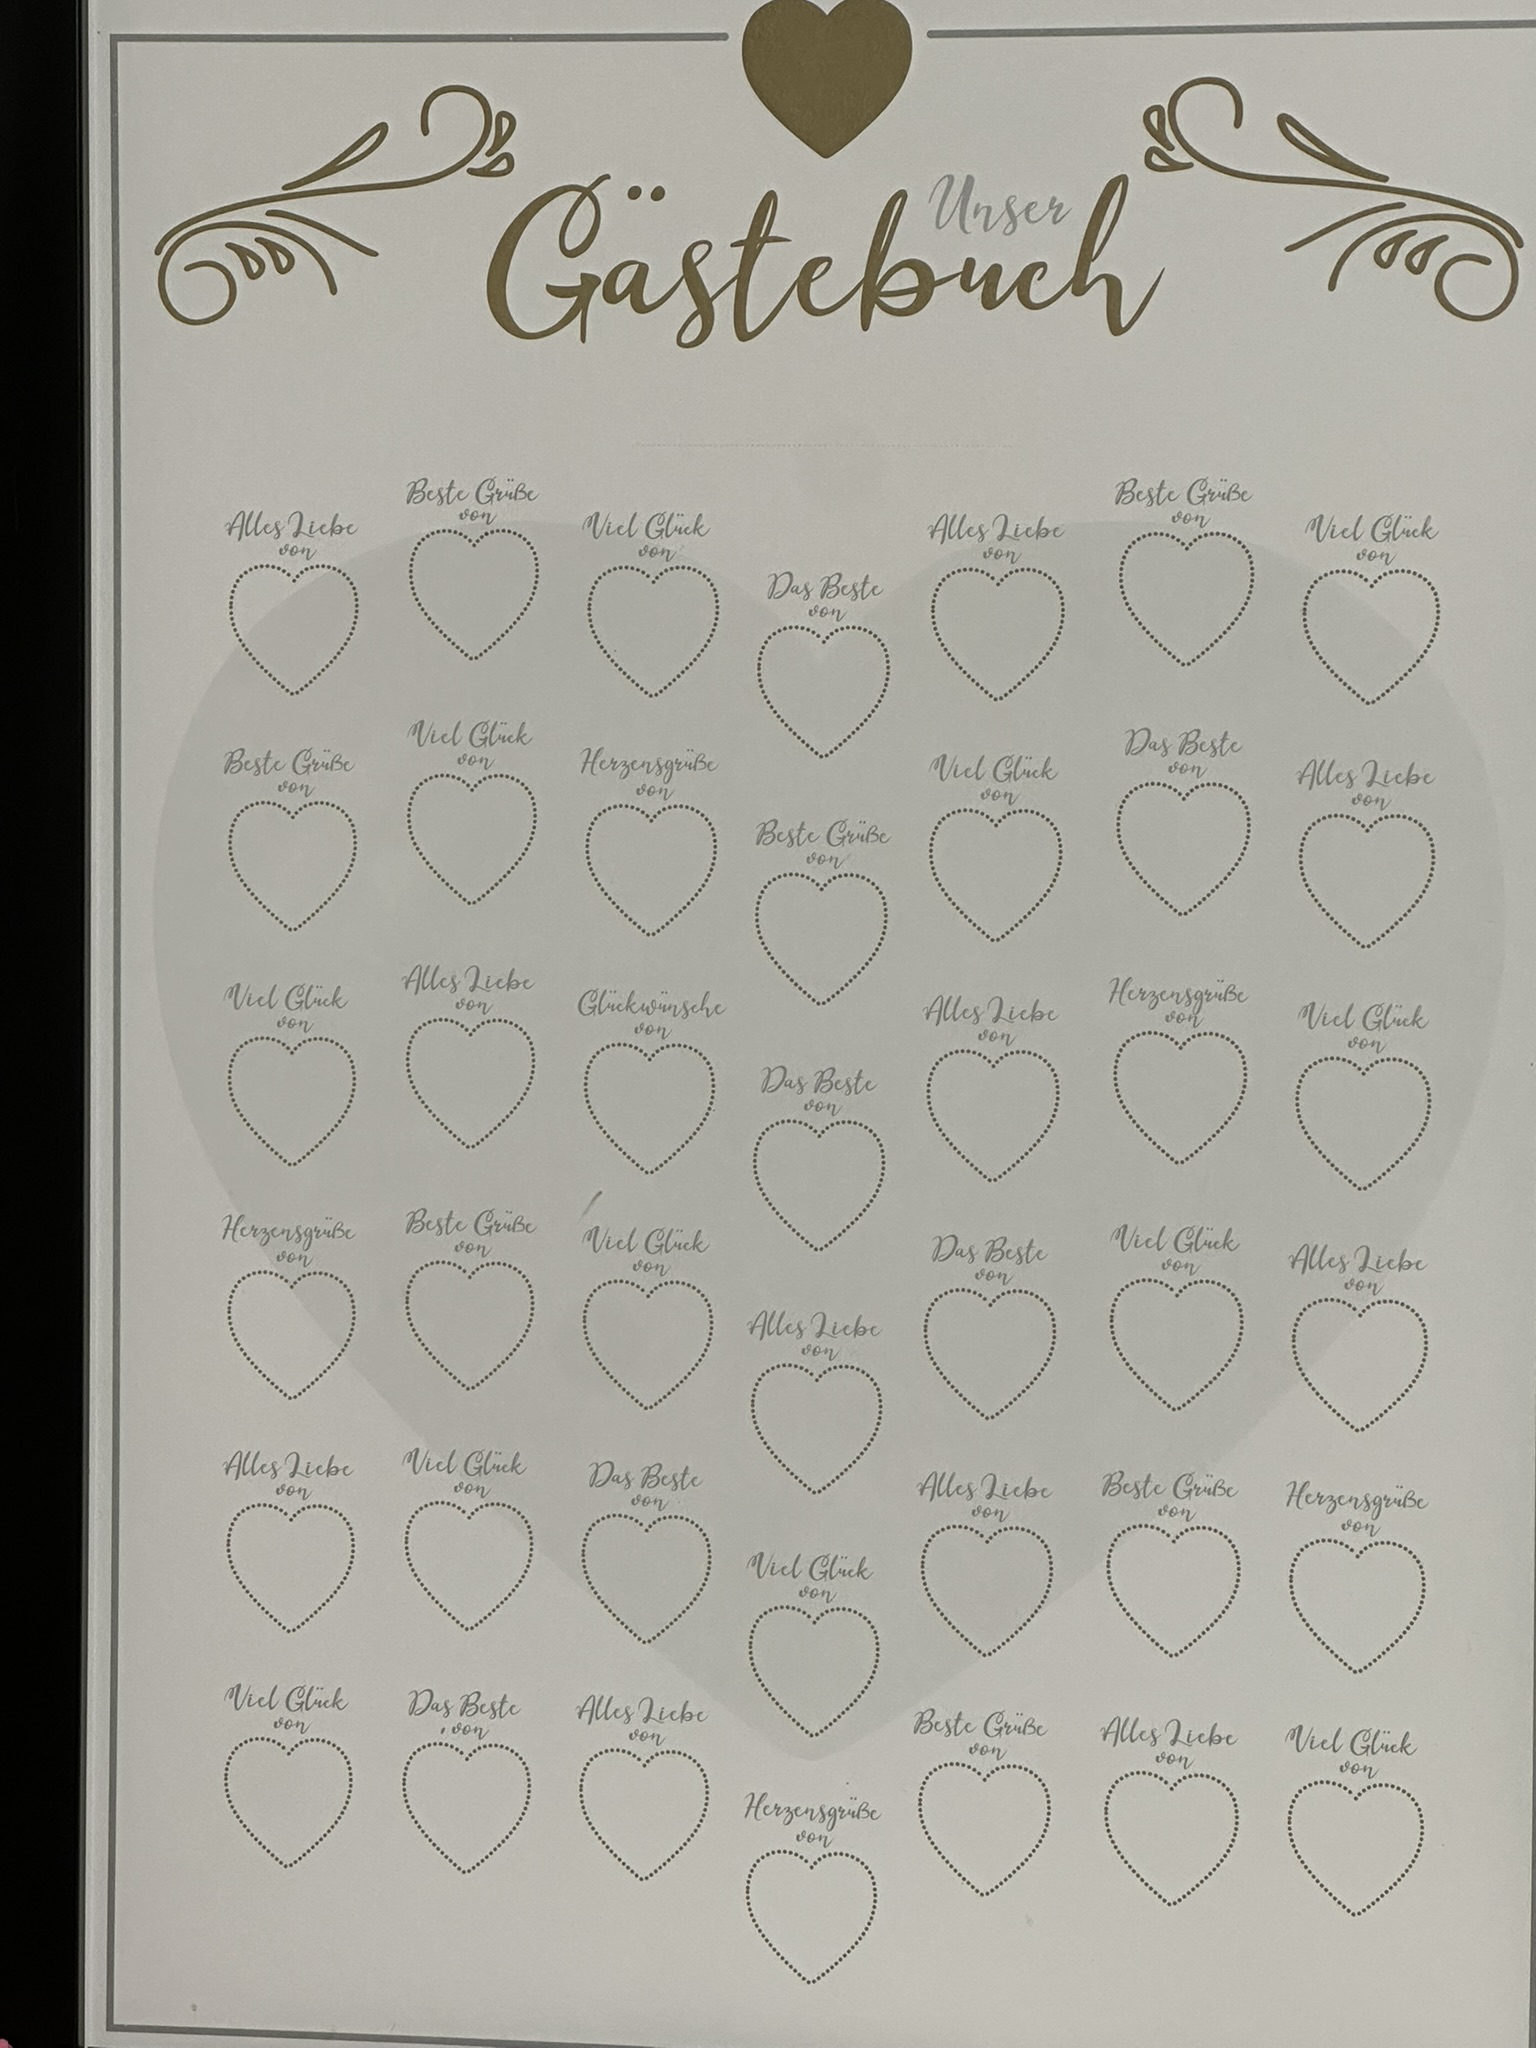 Unser
Gästebuch
Alles Liebe
von
Beste Grüße
von
Viel Glück
von
Das Beste
von
Alles Liebe
von
Beste Grüße
von
Viel Glück
von
Beste Grüße
von
Viel Glück
von
Herzensgrüße
von
Beste Grüße
von
Viel Glück
von
Das Beste
von
Alles Liebe
von
Viel Glück
von
Alles Liebe
von
Glückwünsche
von
Das Beste
von
Alles Liebe
von
Herzensgrüße
von
Viel Glück
von
Herzensgrüße
von
Beste Grüße
von
Viel Glück
von
Alles Liebe
von
Das Beste
von
Viel Glück
von
Alles Liebe
von
Alles Liebe
von
Viel Glück
von
Das Beste
von
Viel Glück
von
Alles Liebe
von
Beste Grüße
von
Herzensgrüße
von
Viel Glück
von
Das Beste
von
Alles Liebe
von
Herzensgrüße
von
Beste Grüße
von
Alles Liebe
von
Viel Glück
von